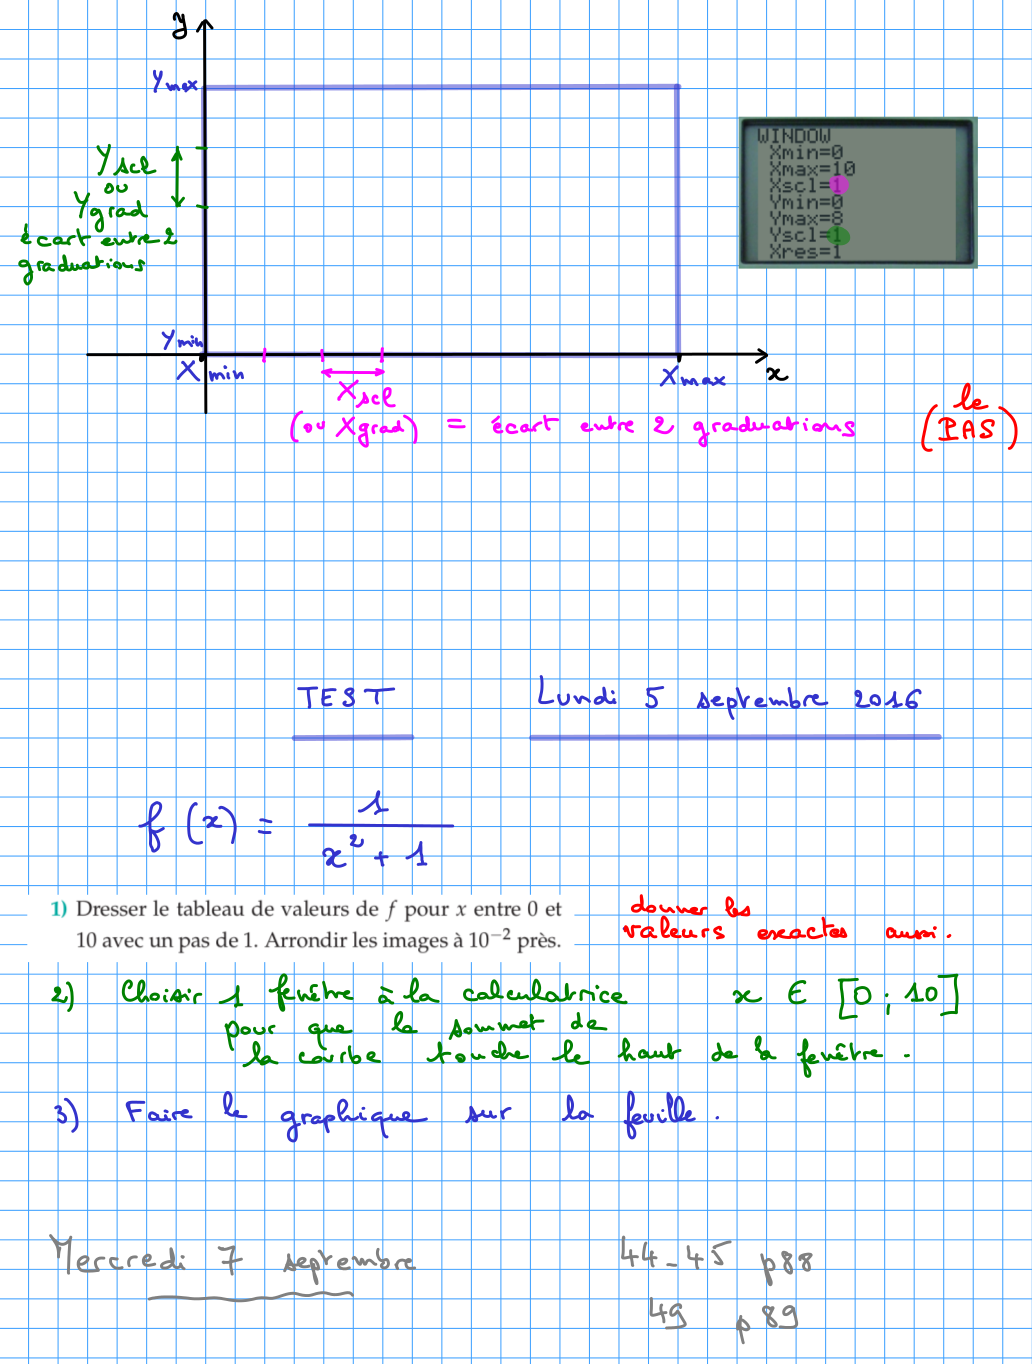 y
Ymax
Yscl
ou
Ygrad
écart entre 2
graduations
WINDOW
Xmin=0
Xmax=10
Xscl=1
Ymin=0
Ymax=8
Yscl=1
Xres=1
Ymin
Xmin
Xmax
x
Xscl
(ou Xgrad) = écart entre 2 graduations
(le PAS)
TEST Lundi 5 septembre 2016
f(x) = 1 / x² + 1
1) Dresser le tableau de valeurs de f pour x entre 0 et
10 avec un pas de 1. Arrondir les images à 10⁻² près.
donner les
valeurs exactes aussi.
2) Choisir 1 fenêtre à la calculatrice x ∈ [0 ; 10]
pour que le sommet de
la courbe touche le haut de la fenêtre.
3) Faire le graphique sur la feuille.
Mercredi 7 septembre 44-45 p88
49 p89